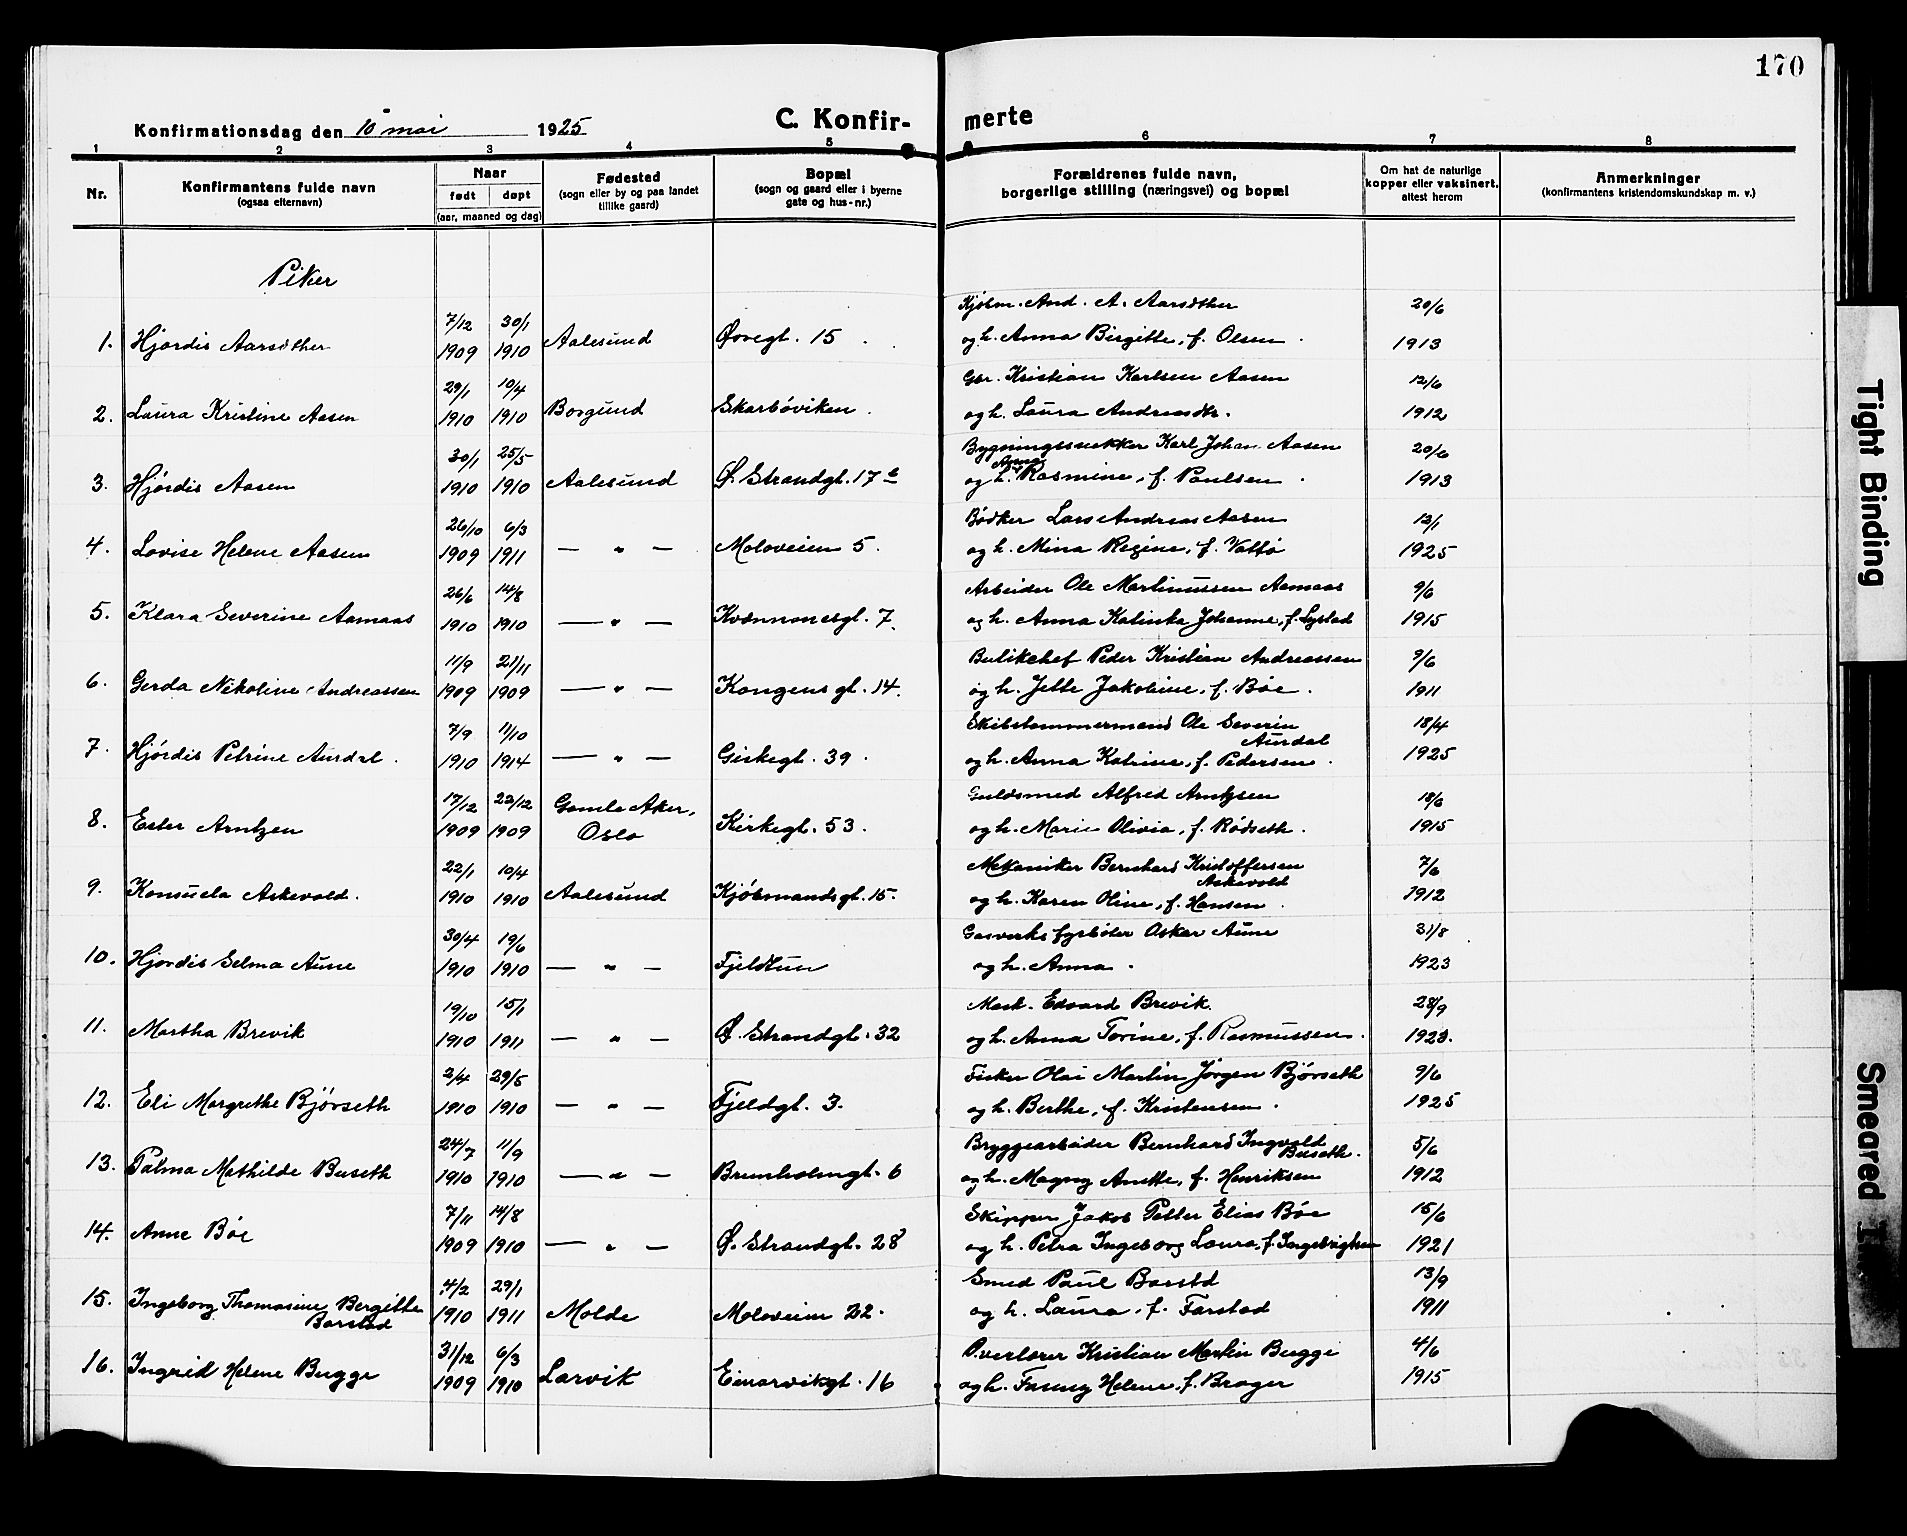 170
Konfirmationsdag den 10 mai 1925
C. Konfir- merte
1 2 3 4 5 6 7 8
Nr.
Konfirmantens fulde navn
(ogsaa efternavn)
Naar
født døpt
(aar, maaned og dag)
Fødested
(sogn eller by og paa landet
tillike gaard)
Bopæl
(sogn og gaard eller i byerne
gate og hus-nr.)
Forældrenes fulde navn,
borgerlige stilling (næringsvei) og bopæl
Om hat de naturlige
kopper eller vaksinert,
attest herom
Anmerkninger
(konfirmantens kristendomskundskap m. v.)
Piker
7/12 30/1 Kjøbm. And. A. Aarsæther 20/6
1. Hjørdis Aarsæther 1909 1910 Aalesund Øvregt. 15 og h. Anna Birgitte, f. Olsen. 1913
29/1 10/4 Gbr. Kristian Karlsen Aasen 12/6
2. Laura Kristine Aasen 1910 1910 Borgund Skarbøviken. og h. Laura Andreasdtr. 1912
30/1 25/5 Bygningssnekker Karl Johan Aasen 20/6
Anna
3. Hjørdis Aasen 1910 1910 Aalesund Ø. Strandgt. 17 b og h. Rasmine, f. Paulsen. 1913
26/10 6/3 Bødker Lars Andreas Aasen 12/1
4. Lovise Helene Aasen 1909 1911 — " — Moloveien 5. og h. Mina Regine, f. Vattø 1925
26/6 14/8 Arbeider Ole Martinussen Aamaas 9/6
5. Klara Severine Aamaas 1910 1910 — " — Kvænnanesgt. 7. og h. Anna Katinka Johanne, f. Lystad 1915
11/9 21/11 Butikchef Peder Kristian Andreassen 9/6
6. Gerda Nikoline Andreassen 1909 1909 — " — Kongensgt. 14. og h. Jette Jakobine, f. Bøe. 1911
7/9 11/10 Skibstømmermand Ole Severin 18/4
Aurdal
7. Hjørdis Petrine Aurdal. 1910 1914 — " — Giskegt. 39. og h. Anna Katrine, f. Pedersen. 1925
17/12 22/12 Gamle Aker, Guldsmed Alfred Arntzen 18/6
8. Ester Arntzen 1909 1909 Oslo Kirkegt. 53. og h. Marie Olivia, f. Rødseth. 1915
22/1 10/4 Mekaniker Bernhard Kristoffersen 7/6
Askevold
9. Konsuela Askevold. 1910 1910 Aalesund Kjøbmandsgt. 15. og h. Karen Oline, f. Hansen. 1912
30/4 19/6 Gasverksfyrbøter Oskar Aune 31/8
10. Hjørdis Selma Aune 1910 1910 — " — Fjeldtun og h. Anna. 1923
19/10 15/1 Mask. Edvard Brevik. 28/9
11. Martha Brevik 1910 1911 — " — Ø. Strandgt. 32 og h. Anna Torine, f. Rasmussen. 1923.
2/4 29/5 Fisker Olai Martin Jørgen Bjørseth 9/6
12. Eli Margrethe Bjørseth 1910 1910 — " — Fjeldgt. 3. og h. Berthe, f. Kristensen. 1925
24/7 11/9 Bryggearbeider Bernhard Ingvald 5/6
Buseth.
13. Palma Mathilde Buseth 1910 1910 — " — Brunholmgt. 6 og h. Magny Anette, f. Henriksen 1912
7/11 14/8 Skipper Jakob Petter Elias Bøe 15/6
14. Anne Bøe 1909 1910 — " — Ø. Strandgt. 28 og h. Petra Ingeborg Laura, f. Ingebrigtsen 1921
4/2 29/1 Smed Paul Barstad 13/9
15. Ingeborg Thomasine Bergitte 1910 1911 Molde Moloveien 22. og h. Laura, f. Farstad 1911
Barstad
31/12 6/3 Overlærer Kristian Martin Bugge 4/6
16. Ingrid Helene Bugge 1909 1910 Larvik Einarvikgt. 16 og h. Fanny Helene, f. Brager 1915
Tight Binding
Smeared